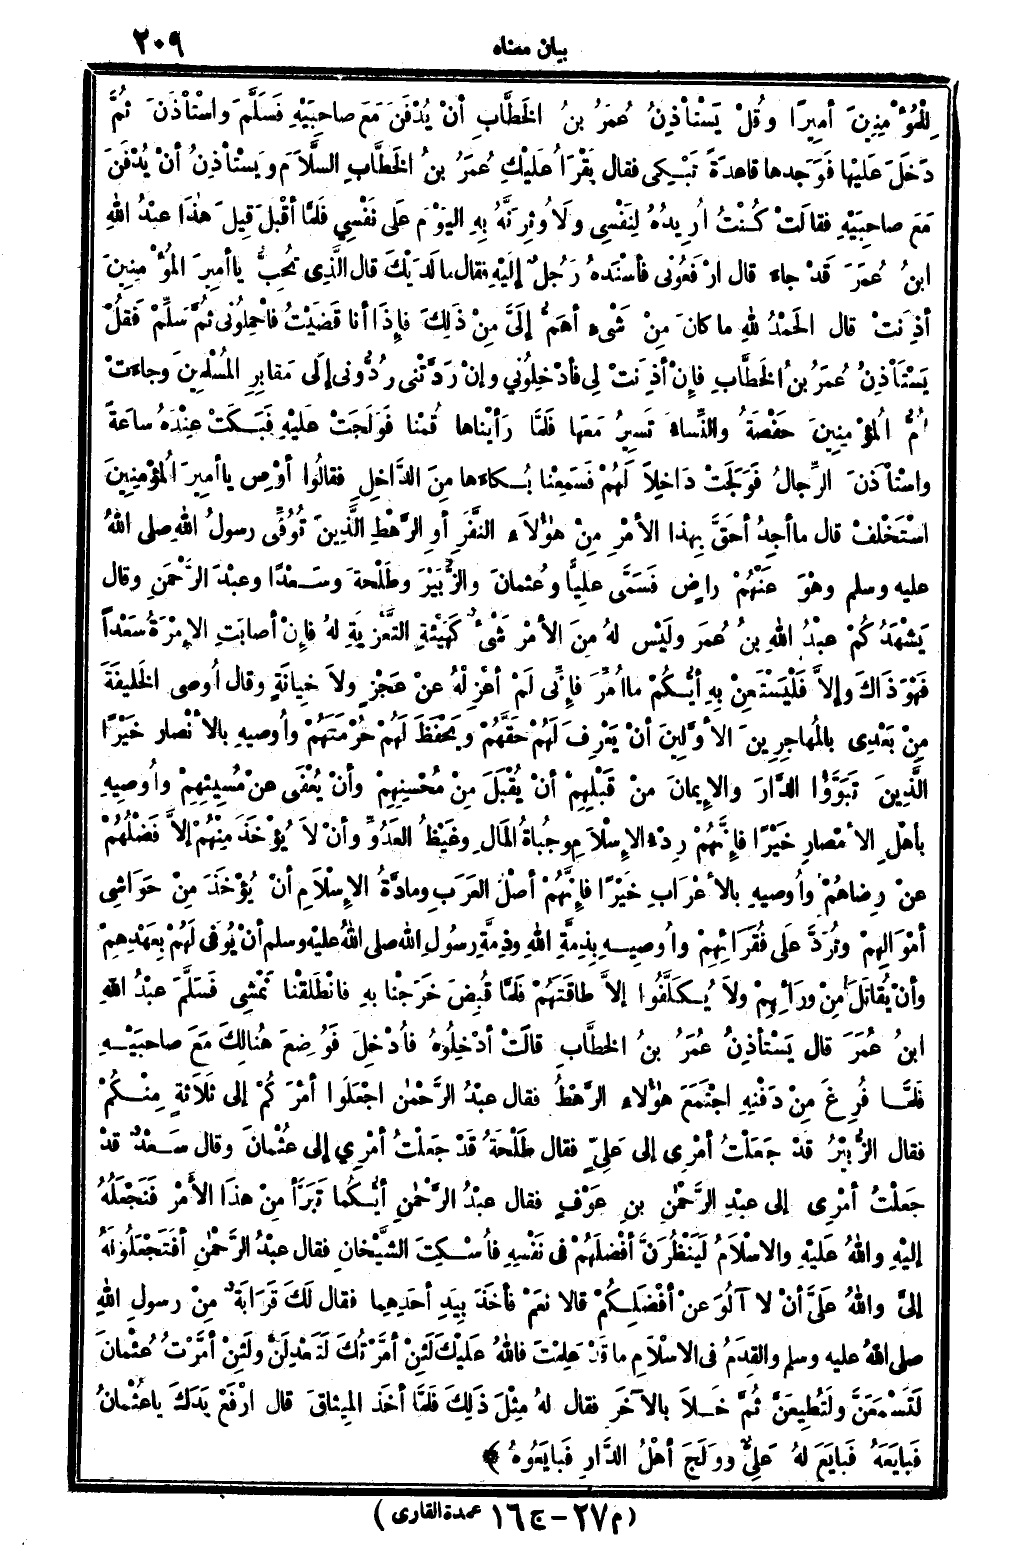 بيان معناه
٢٠٩
لِلْمُؤْمِنِينَ أمِيرًا وقُلْ يَسْتَأذِنُ عُمَرُ بنُ الخَطَّابِ أنْ يُدْفَنَ مَعَ صاحِبَيْهِ فَسَلَّمَ واسْتَأذَنَ ثُمَّ
دَخَلَ عَلَيْها فَوَجَدها قاعِدَةً تَبْكِي فقال يَقْرَأُ عَلَيْكِ عُمَرُ بنُ الخَطَّابِ السَّلاَمَ ويَسْتأذِنُ أنْ يُدْفَنَ
مَعَ صاحِبَيْهِ فقالَتْ كُنْتُ أُرِيدُهُ لِنَفْسِي ولَأُوثِرَنَّهُ بِهِ اليَوْمَ عَلى نَفْسِي فَلمَّا أقْبلَ قِيلَ هٰذَا عبْدُ اللهِ
ابنُ عُمَرَ قَدْ جاءَ قال ارْفَعُونِى فأسْنَدهُ رَجُلٌ إلَيْهِ فقال مالَدَيْكَ قال الَّذِى تُحِبُّ يا أمِيرَ المُؤْمِنِينَ
أذِنَتْ قال الحَمْدُ لِلهِ ما كانَ مِنْ شَىْءٍ أهَمُّ إلَيَّ مِنْ ذَلِكَ فإذَا أنا قَضَيْتُ فاحْمِلُونِى ثُمَّ سَلِّمْ فَقلْ
يَسْتَأذِنُ عُمَرُ بنُ الخَطَّابِ فإنْ أذِنَتْ لِى فأدْخِلُونِي وإنْ رَدَّتْنِى رُدُّونِى إلَى مَقابِرِ المُسْلِمِينَ وجاءَتْ
أُمُّ المُؤْمِنِينَ حَفْصَةُ والنِّساءُ تَسِيرُ مَعَها فَلمَّا رَأيْناها قُمْنا فَوَلَجَتْ عليْهِ فَبَكَتْ عِنْدَهُ ساعَةً
واسْتأذَنَ الرِّجالُ فَوَلَجَتْ دَاخِلاً لَهُمْ فَسَمِعْنا بُكاءَها مِنَ الدَّاخِلِ فقالُوا أوْصِ يا أمِيرَ المُؤْمِنِينَ
اسْتَخْلِفْ قال ما أجِدُ أحَقَّ بِهذا الأمْرِ مِنْ هٰؤُلاَءِ النَّفَرِ أوِ الرَّهْطِ الَّذِينَ تُوُفِّيَ رسولُ اللهِ صلى اللهُ
عليه وسلم وهْوَ عَنْهُمْ راضٍ فَسَمَّى عَلِيًّا وعُثمانَ والزُّبَيْرَ وطَلْحَةَ وسَعْدًا وعبْدَ الرَّحْمَنِ وقال
يَشْهَدُكُمْ عبْدُ اللهِ بنُ عُمَرَ ولَيْس لهُ مِنَ الأمْرِ شَىْءٌ كَهَيْئَةِ التَّعْزِيَةِ لهُ فإنْ أصابَتِ الإمْرَةُ سَعْداً
فَهْوَ ذَاكَ وإلاَّ فَلْيَسْتَعِنْ بِهِ أيُّكُمْ ما أُمِّرَ فإنِّى لَمْ أعْزِلْهُ عنْ عَجْزٍ ولاَ خِيانَةٍ وقال أُوصى الخَلِيفَةَ
مِنْ بَعْدِى بالمُهاجِرِينَ الأوَّلِينَ أنْ يَعْرِفَ لَهُمْ حَقَّهُمْ ويَحْفَظَ لَهُمْ حُرْمَتَهُمْ وأُوصِيهِ بالأنْصارِ خَيْرًا
الَّذِينَ تَبَوَّؤُا الدَّارَ والإيمانَ مِنْ قَبْلِهِمْ أنْ يُقْبَلَ مِنْ مُحْسِنِهِمْ وأنْ يُعْفَى عنْ مُسِيئِهِمْ وأُوصِيهِ
بأهْلِ الأمْصارِ خَيْرًا فإنَّهُمْ رِدْءُ الإسْلاَمِ وجُباةُ المَالِ وغَيْظُ العَدُوِّ وأنْ لاَ يُؤْخَذَ مِنْهُمْ إلاَّ فَضْلُهُمْ
عنْ رِضاهُمْ وأُوصِيهِ بالأعْرَابِ خَيْرًا فإنَّهُمْ أصْلُ العَرَبِ ومادَّةُ الإسْلاَمِ أنْ يُؤْخَذَ مِنْ حَوَاشِى
أمْوَالِهِمْ وتُرَدَّ علَى فُقَرَائِهِمْ وأُوصِيهِ بِذِمَّةِ اللهِ وذِمَّةِ رسُولِ اللهِ صلى اللهُ عليْهِ وسلم أنْ يُوفَى لَهُمْ بِعَهْدِهِمْ
وأنْ يُقاتَلَ مِنْ ورَائِهِمْ ولاَ يُكَلَّفُوا إلاَّ طاقَتَهُمْ فَلمَّا قُبِضَ خَرَجْنا بِهِ فانْطَلَقْنا نَمْشِى فَسَلَّمَ عبْدُ اللهِ
ابنُ عُمَرَ قال يَسْتأذِنُ عُمَرُ بنُ الخطَّابِ قالَتْ أدْخِلُوهُ فأُدْخِلَ فَوُضِعَ هُنالِكَ مَعَ صاحِبَيْهِ
فَلَمَّا فُرِغَ مِنْ دَفْنِهِ اجْتَمَعَ هٰؤُلاءِ الرَّهْطُ فقال عبْدُ الرَّحْمٰنِ اجْعَلُوا أمْرَكُمْ إلى ثَلاَثَةٍ مِنْكُمْ
فقال الزُّبَيْرُ قدْ جَعَلْتُ أمْرِى إلى عَلِيٍّ فقال طَلْحَةُ قَدْ جَعلْتُ أمْرِي إلى عُثْمانَ وقال سَعْدٌ قدْ
جَعَلْتُ أمْرِى إلى عبْدِ الرَّحْمٰنِ بنِ عَوْفٍ فقال عبْدُ الرَّحْمٰنِ أيُّكُما تَبَرَّأ مِنْ هذَا الأمْرِ فَنَجْعَلُهُ
إليْهِ واللهُ عَليْهِ والاسْلاَمُ لَيَنْظُرَنَّ أفْضَلَهُمْ فى نَفْسِهِ فأُسْكِتَ الشَّيْخانِ فقال عبْدُ الرَّحْمٰنِ أفَتَجْعَلُونَهُ
إلىَّ واللهُ علَيَّ أنْ لا آلُوَ عنْ أفْضَلِكُمْ قالا نعَمْ فأخَذَ بِيَدِ أحَدِهِما فقال لَكَ قَرَابَةٌ مِنْ رسولِ اللهِ
صلى اللهُ عليه وسلم والقِدَمُ فى الاسْلاَمِ ما قدْ عَلِمْتَ فاللهُ علَيْكَ لَئِنْ أمَّرْتُكَ لَتَعْدِلَنَّ ولَئِنْ أمَّرْتُ عُثْمانَ
لَتَسْمَعَنَّ ولَتُطِيعَنَّ ثُمَّ خَلاَ بالآخَرِ فقال لهُ مِثْلَ ذَلِكَ فَلمَّا أخَذَ المِيثاقَ قال ارْفَعْ يَدَكَ يا عُثْمانُ
فَبايَعَهُ فَبايَعَ لهُ عَلِيٌّ ووَلَجَ أهْلُ الدَّارِ فَبايَعُوهُ ﴾
(م ٢٧ - ج ١٦ عمدة القارى)